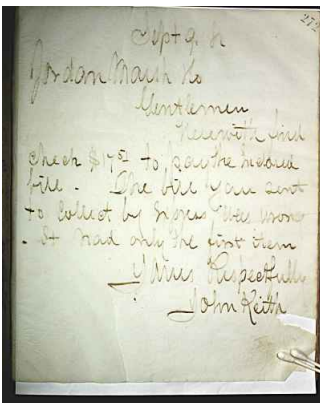 272
Sept 9.
Jordan Marsh Co
Gentlemen
Herewith find
check $17.52 to pay the inclosed
bill. The bill you sent
to collect by Express was wrong
. It had only the first item
Yours Respectfully
John Keith